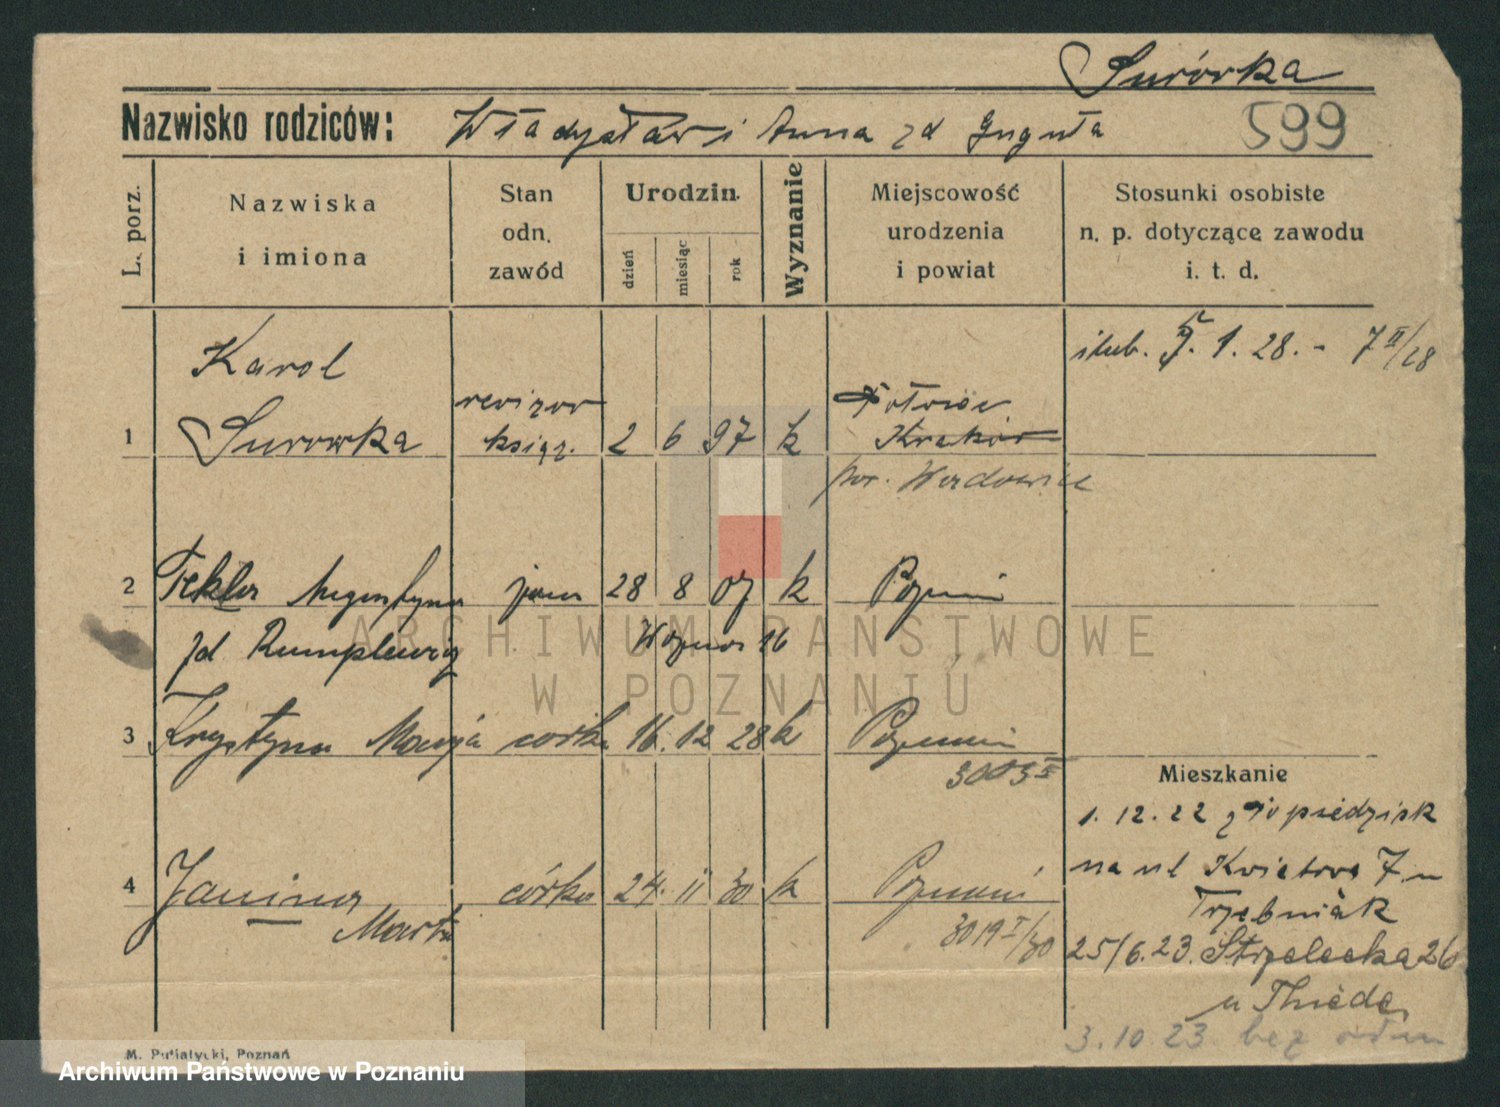 Surówka
599
Nazwisko rodziców: Władysław i Anna zd Guguła
L. porz.
Nazwiska
i imiona
Stan
odn.
zawód
Urodzin.
dzień
miesiąc
rok
Wyznanie
Miejscowość
urodzenia
i powiat
Stosunki osobiste
n. p. dotyczące zawodu
i. t. d.
1. 28. - 7 II/28
Karol
rewizor
1 Surowka książ. 2 6 97 k Kraków
pow. Wadowice
2 Tekla Augustyna 28 8 07 k Poznań
zd Rumplewicz 16
3 Krystyna Maryja córka 16. 12 28 k Poznań
Mieszkanie
1. 12. 22 z
4 Janina córka 24. 11 30 k Poznań
Marta
na ul Kwiatowa 7 u
Trzebniak
25/6. 23. Strzelecka 26
u Thiede
3. 10 23 bez odm
M. Putiatycki, Poznań
ARCHIWUM PAŃSTWOWE
W POZNANIU
Archiwum Państwowe w Poznaniu